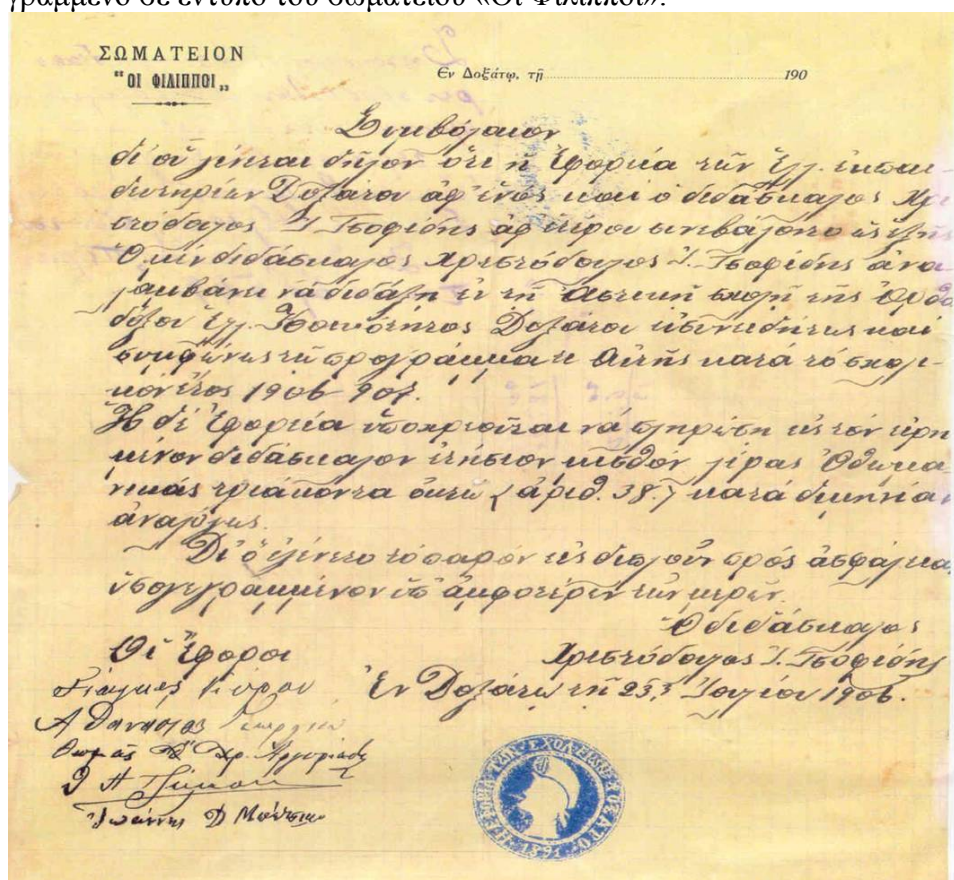 γραμμένο σε έντυπο του σωματείου «Οι Φίλιπποι».
ΣΩΜΑΤΕΙΟΝ
"ΟΙ ΦΙΛΙΠΠΟΙ"
Εν Δοξάτῳ, τῇ 190
Συμβόλαιον
δι' οὗ γίνεται δῆλον ὅτι ἡ Ἐφορεία τῶν Ἑλλ. ἐκπαι-
δευτηρίων Δοξάτου ἀφ' ἑνὸς καὶ ὁ διδάσκαλος Χρι
στόδουλος Ι. Τσοφίδης ἀφ' ἑτέρου συνεβάλοντο ὡς ἑξῆς
Ὁ μὲν διδάσκαλος Χριστόδουλος Ι. Τσοφίδης ἀνα
λαμβάνει νὰ διδάξῃ ἐν τῇ Ἀστικῇ σχολῇ τῆς Ὀρθο
δόξου Ἑλλ. Κοινότητος Δοξάτου εὐσυνειδήτως καὶ
συμφώνως τῷ προγράμματι αὐτῆς κατὰ τὸ σχολι-
κὸν ἔτος 1906-907.
Ἡ δὲ Ἐφορεία ὑποχρεοῦται νὰ πληρώσῃ εἰς τὸν εἰρη
μένον διδάσκαλον ἐτήσιον μισθὸν λίρας Ὀθωμα
νικὰς τριάκοντα ὀκτὼ {ἀριθ. 38.} κατὰ διμηνίαν
ἀναλόγως.
Δι' ὃ ἐγένετο τὸ παρὸν εἰς διπλοῦν πρὸς ἀσφάλειαν
ὑπογεγραμμένον ὑπ' ἀμφοτέρων τῶν μερῶν.
Ὁ διδάσκαλος
Οἱ Ἔφοροι
Χριστόδουλος Ι. Τσοφίδης
Ἐν Δοξάτῳ τῇ 23ῃ Ἰουλίου 1906.
Ἀθανάσιος
Θωμᾶς Χρ.
Ἰωάννης Δ
1891